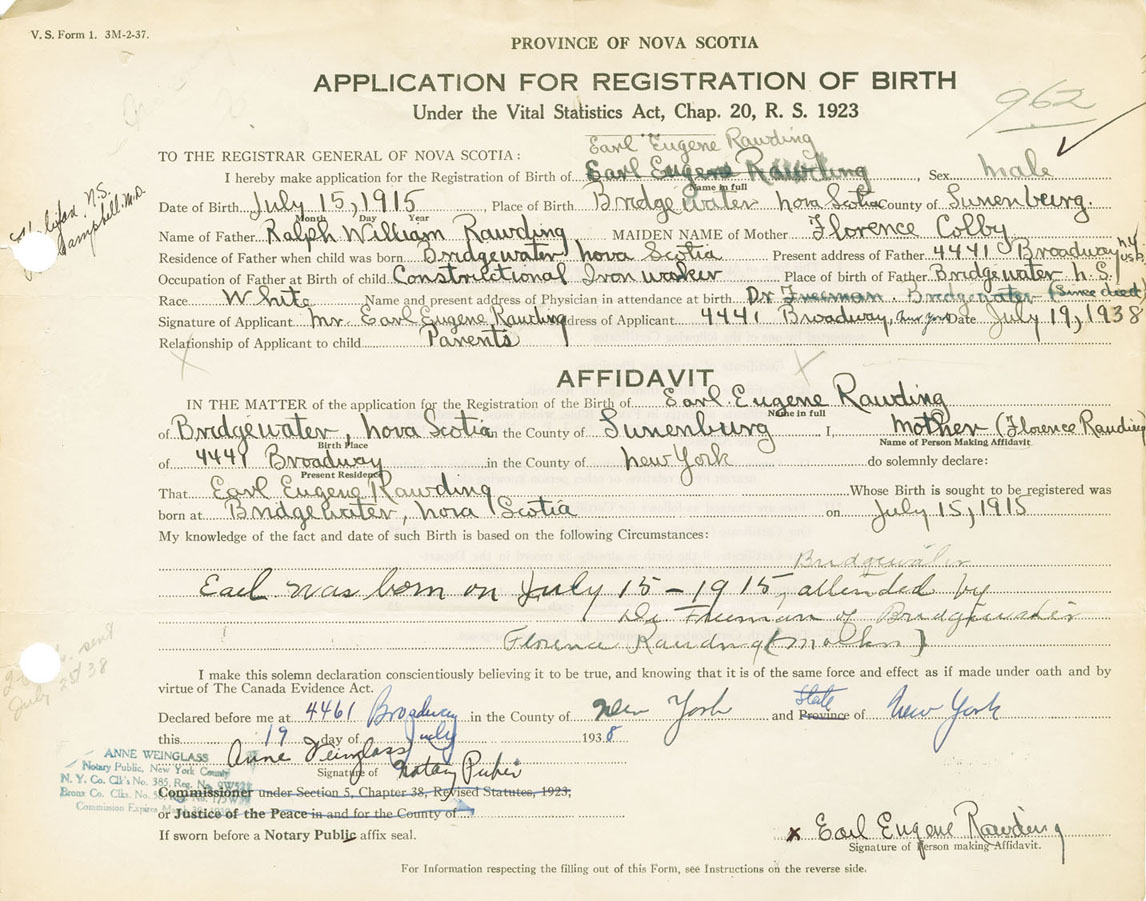 V. S. Form 1. 3M-2-37.
PROVINCE OF NOVA SCOTIA
APPLICATION FOR REGISTRATION OF BIRTH
962
Under the Vital Statistics Act, Chap. 20, R. S. 1923
Earl Eugene Rawding
TO THE REGISTRAR GENERAL OF NOVA SCOTIA:
I hereby make application for the Registration of Birth of Earl Eugene Rawding, Sex male
Name in full
Date of Birth July 15, 1915, Place of Birth Bridgewater Nova Scotia County of Lunenburg
Month Day Year
Name of Father Ralph William Rawding MAIDEN NAME of Mother Florence Colby
Residence of Father when child was born Bridgewater Nova Scotia Present address of Father 4441 Broadway N.Y.
Occupation of Father at Birth of child Constrictional Iron worker Place of birth of Father Bridgewater N.S.
Race White Name and present address of Physician in attendance at birth Dr Freeman. Bridgewater (since died)
Signature of Applicant Mr. Earl Eugene Rawding dress of Applicant 4441 Broadway, New York Date July 19, 1938
Relationship of Applicant to child Parents
N.S.
Campbell M.D.
AFFIDAVIT
IN THE MATTER of the application for the Registration of the Birth of Earl Eugene Rawding
Name in full
of Bridgewater, Nova Scotia in the County of Lunenburg I, Mother (Florence Rawding)
Birth Place Name of Person Making Affidavit
of 4441 Broadway in the County of New York do solemnly declare:
Present Residence
That Earl Eugene Rawding Whose Birth is sought to be registered was
born at Bridgewater, Nova Scotia on July 15, 1915
My knowledge of the fact and date of such Birth is based on the following Circumstances:
Bridgewater
Earl was born on July 15-1915, attended by
Dr Freeman of Bridgewater
Florence Rawding (Mother)
sent
July 25/38
I make this solemn declaration conscientiously believing it to be true, and knowing that it is of the same force and effect as if made under oath and by
virtue of The Canada Evidence Act.
State
Declared before me at 4461 Broadway in the County of New York and Province of New York
this 19 day of July 1938
Anne Weinglass
Signature of Notary Public
ANNE WEINGLASS
Notary Public, New York County
N. Y. Co. Clk's No. 385, Reg. No.
Bronx Co. Clks. No.
Commission Expires March 30,
Commissioner under Section 5, Chapter 38, Revised Statutes, 1923;
or Justice of the Peace in and for the County of
If sworn before a Notary Public affix seal.
x Earl Eugene Rawding
Signature of Person making Affidavit.
For Information respecting the filling out of this Form, see Instructions on the reverse side.